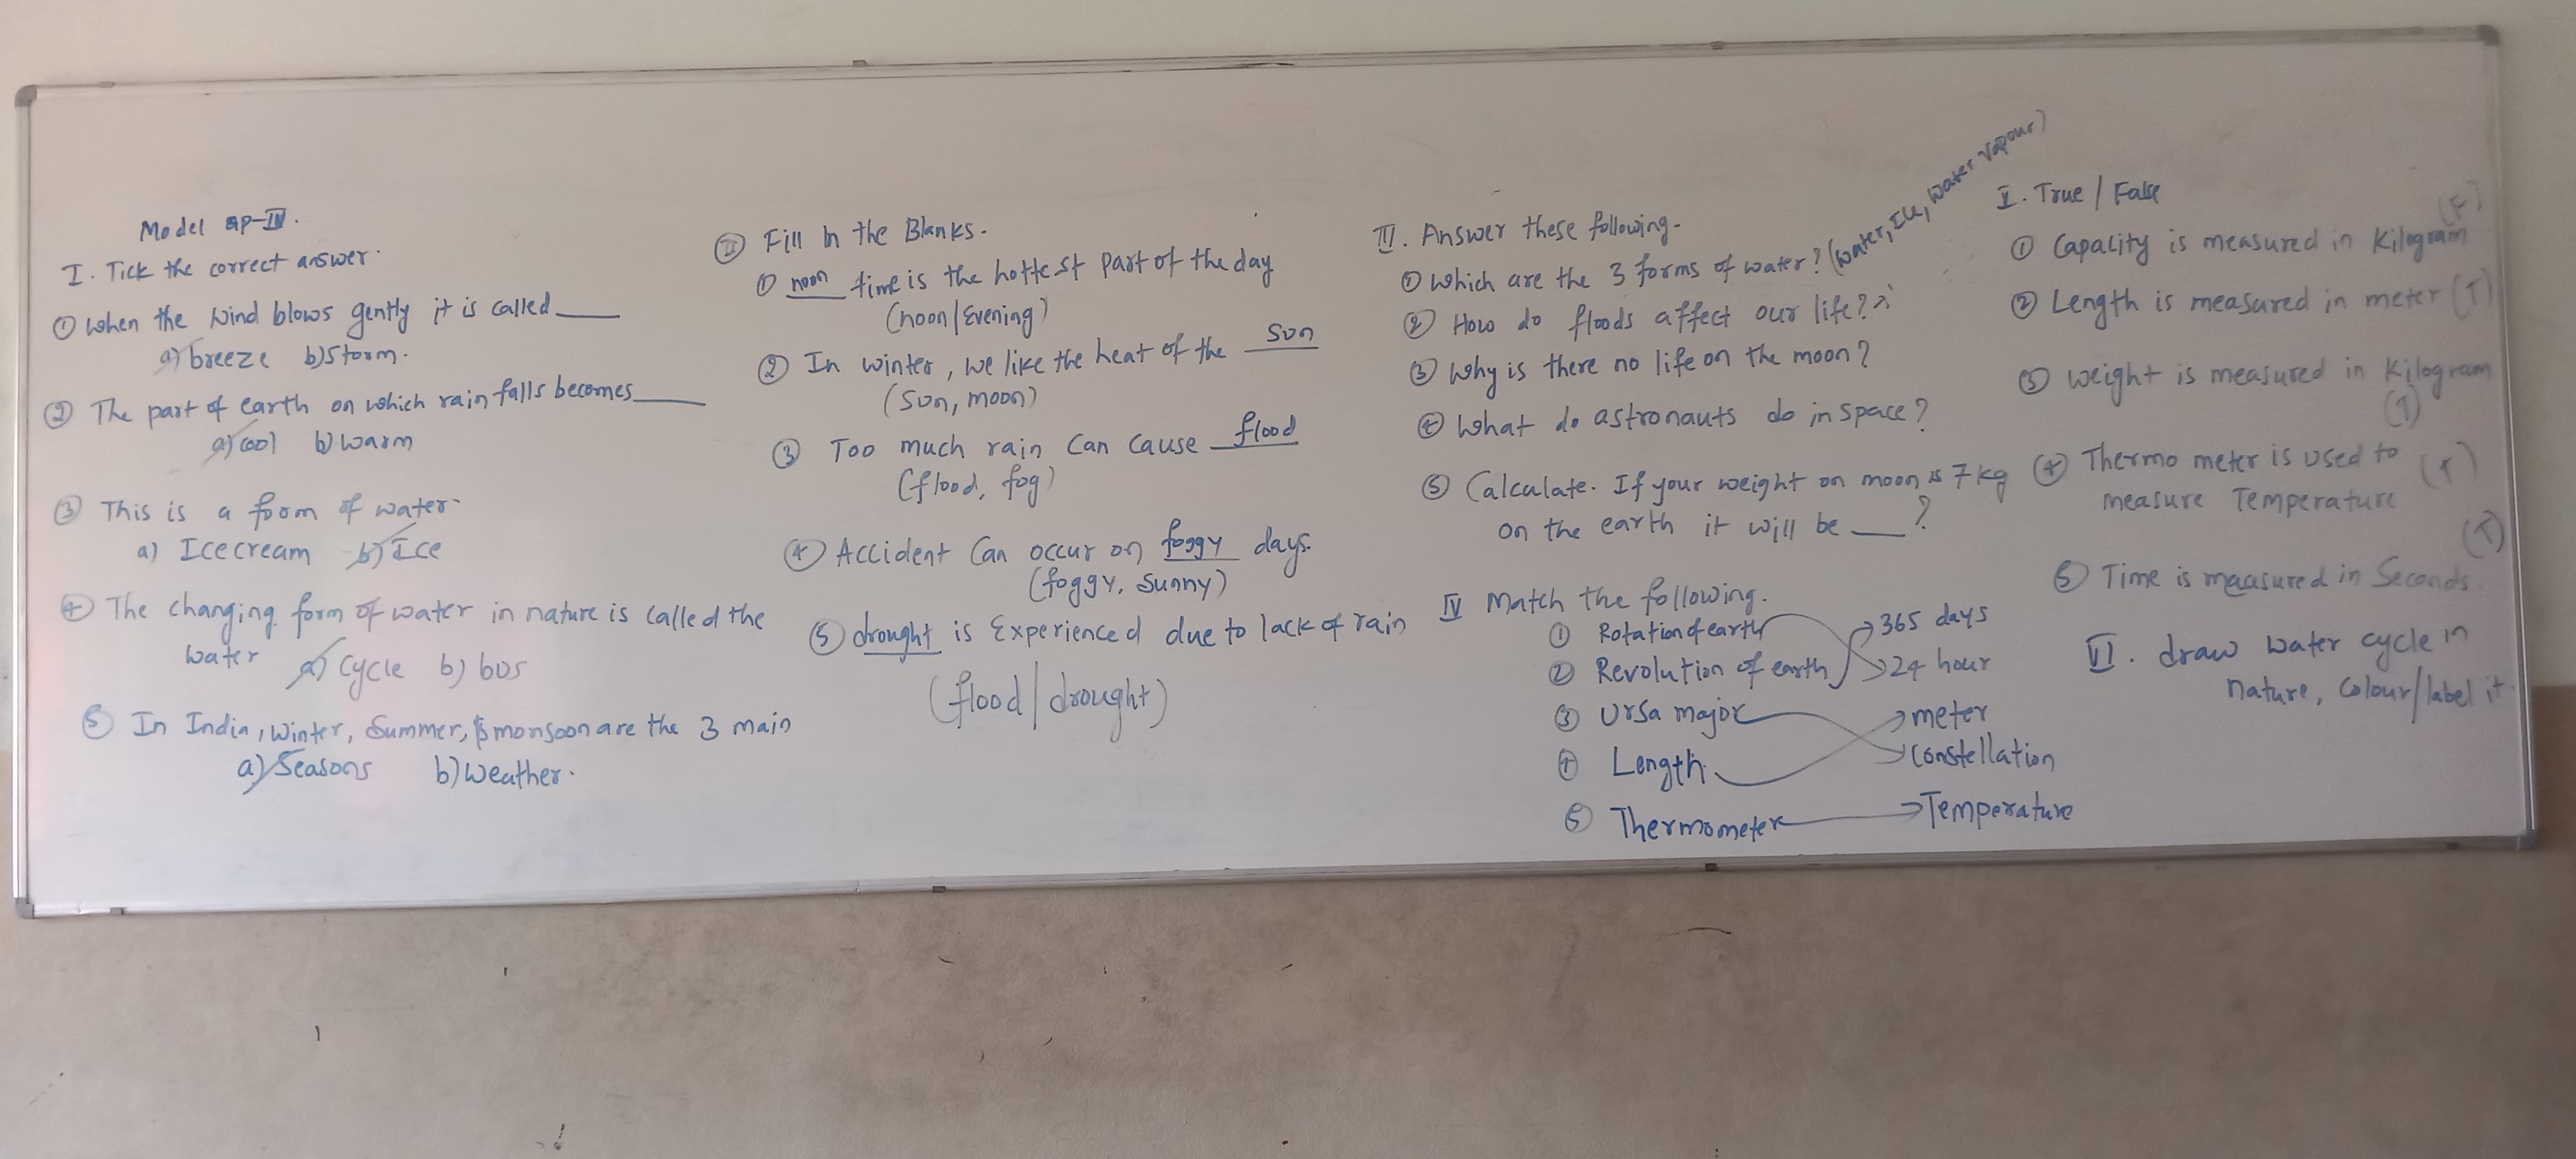 Model QP-IV.
I. Tick the correct answer.
① When the wind blows gently it is called____
a) breeze b) Storm.
② The part of earth on which rain falls becomes____
a) cool b) warm
③ This is a form of water.
a) Icecream b) Ice
④ The changing form of water in nature is called the
water a) cycle b) bus
⑤ In India, Winter, Summer, & monsoon are the 3 main
a) Seasons b) Weather.
II Fill In the Blanks.
① noon time is the hottest part of the day
(noon/Evening)
② In winter, we like the heat of the sun
(Sun, moon)
③ Too much rain can cause flood
(flood, fog)
④ Accident Can occur on foggy days.
(foggy, Sunny)
⑤ drought is Experienced due to lack of rain
(flood/drought)
III. Answer these following.
① Which are the 3 forms of water? (Water, Ice, Water Vapour)
② How do floods affect our life?
③ Why is there no life on the moon?
④ What do astronauts do in space?
⑤ Calculate. If your weight on moon is 7 kg
on the earth it will be ____?
IV Match the following.
① Rotation of earth 365 days
② Revolution of earth 24 hour
③ Ursa major meter
④ Length Constellation
⑤ Thermometer Temperature
V. True / False
① Capacity is measured in Kilogram (F)
② Length is measured in meter (T)
③ Weight is measured in Kilogram
(T)
④ Thermo meter is used to
measure Temperature (T)
⑤ Time is maasured in Seconds. (T)
VI. draw water cycle in
nature, Colour/label it.